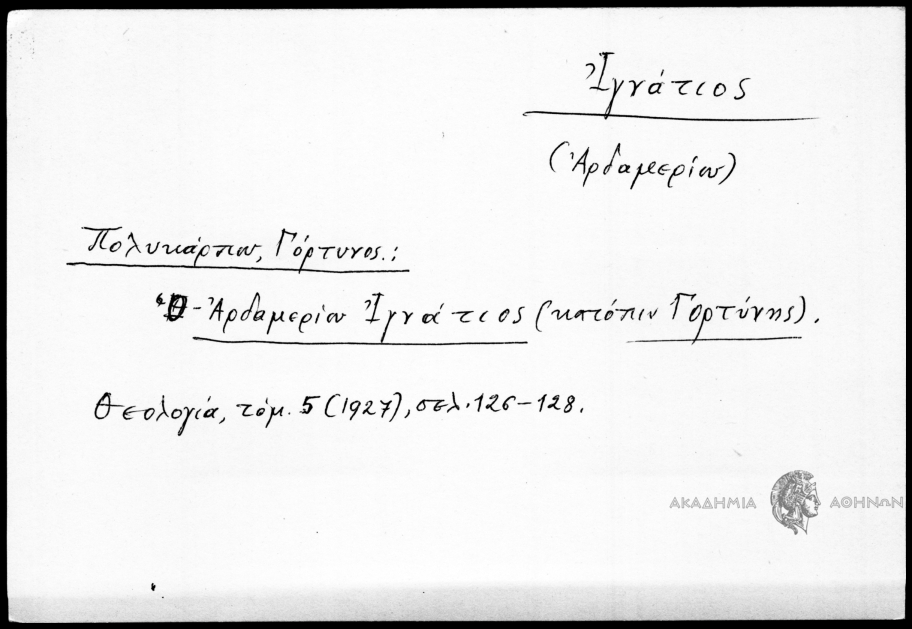 Ἰγνάτιος
(Ἀρδαμερίου)
Πολυκάρπου, Γόρτυνος.:
Ὁ - Ἀρδαμερίου Ἰγνάτιος (κατόπιν Γορτύνης).
Θεολογία, τόμ. 5 (1927), σελ. 126-128.
ΑΚΑΔΗΜΙΑ ΑΘΗΝΩΝ